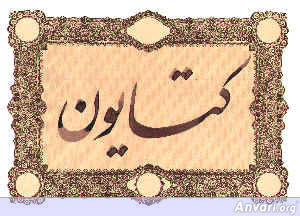 کتایون
Anvari.org